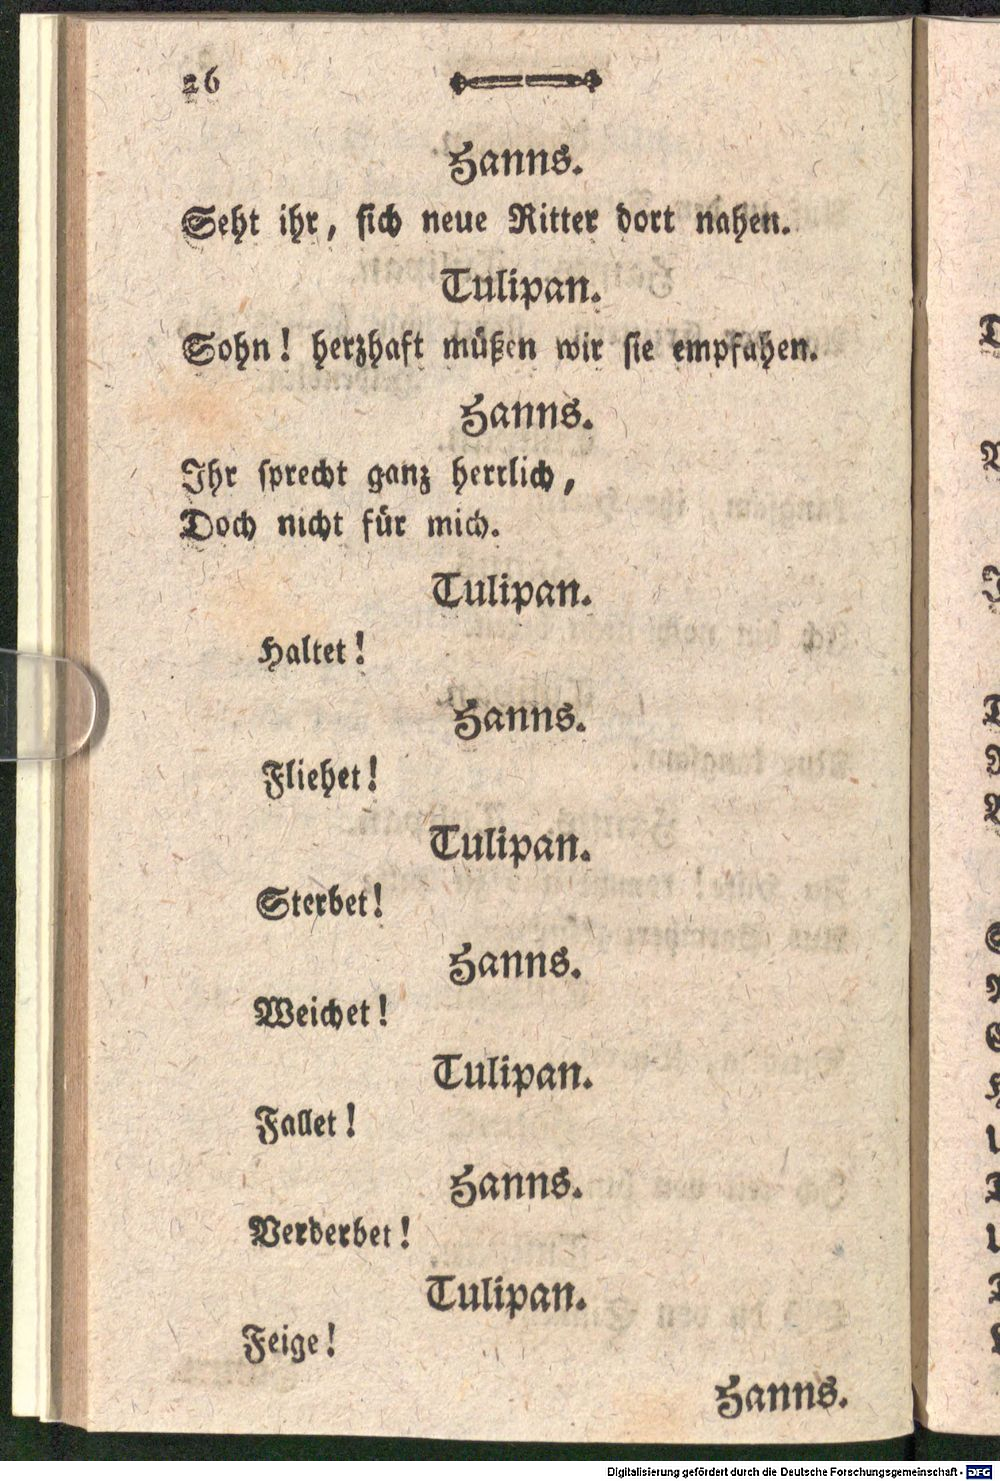 26
Hanns.
Seht ihr, sich neue Ritter dort nahen.
Tulipan.
Sohn! herzhaft müßen wir sie empfahen.
Hanns.
Ihr sprecht ganz herrlich,
Doch nicht für mich.
Tulipan.
Haltet!
Hanns.
Fliehet!
Tulipan.
Sterbet!
Hanns.
Weichet!
Tulipan.
Fallet!
Hanns.
Verderbet!
Tulipan.
Feige!
Hanns.
Digitalisierung gefördert durch die Deutsche Forschungsgemeinschaft - DFG